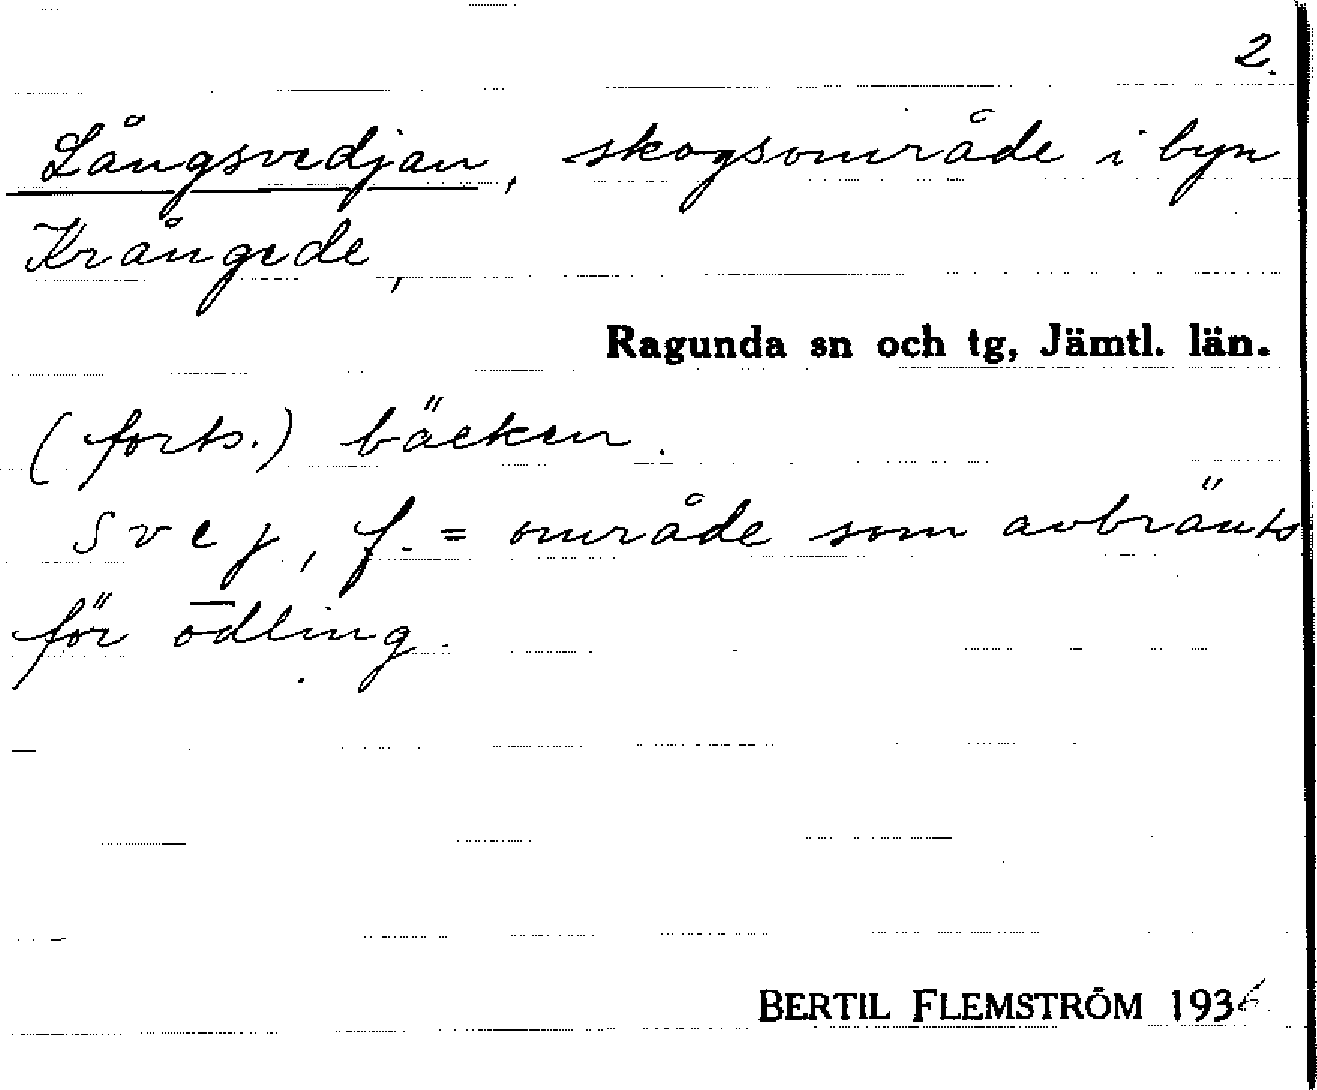 2.
Långsvedjan, skogsområde i byn
Krångede,
Ragunda sn och tg, Jämtl. län.
(forts.) bäcken.
svej, f. = område som avbränts
för odling.
BERTIL FLEMSTRÖM 1936